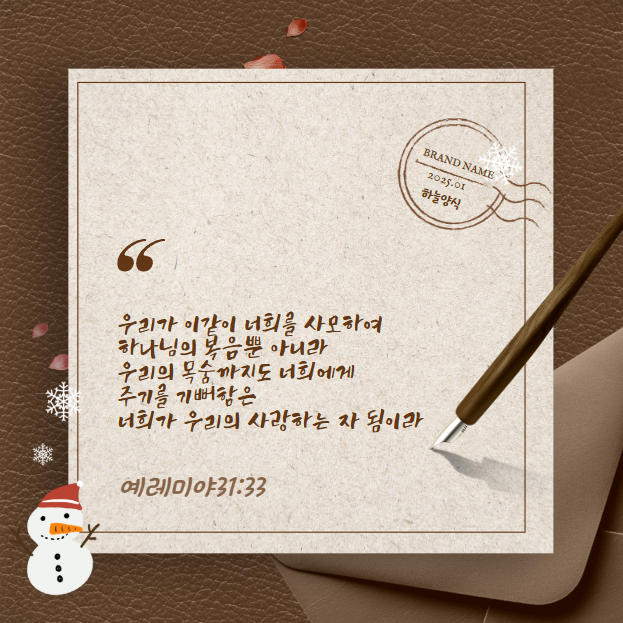 BRAND NAME
2025.01
하늘양식
“
우리가 이같이 너희를 사모하여
하나님의 복음뿐 아니라
우리의 목숨까지도 너희에게
주기를 기뻐함은
너희가 우리의 사랑하는 자 됨이라
예레미야31:33